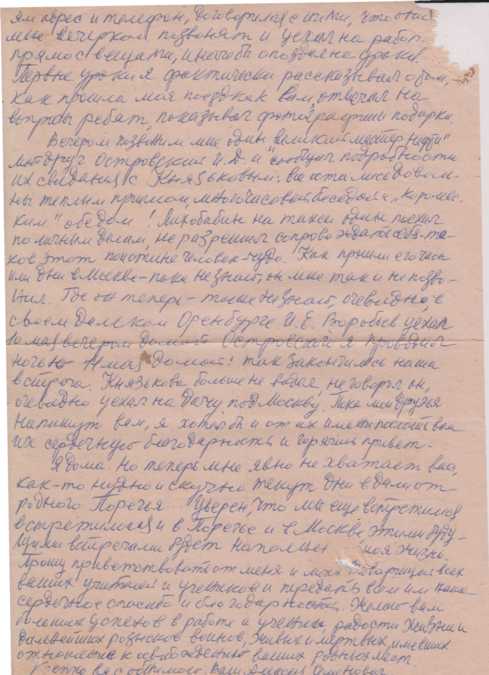 адрес и телефон, договорился с ними, что они
мне вечерком позвонят и уехал на работу
прямо с вещами, и немного опоздал на уроки.
Первые уроки я фактически рассказывал о том,
как прошла моя поездка к вам, отвечал на
вопросы ребят, показывал фотографии и подарки.
Вечером позвонил мне один великий мастер
мой друг Островский И.Д. и сообщил подробности
их свидания с Князьковым. Вы
ны теплым приемом, многочасовой беседой и "королевс-
ким" обедом! на такси один поехал
по личным делам, не разрешил сопровождать себя. Та-
кое этот человек-чудо. Как прошли его часы
или дни в Москве - пока не знаю, он мне так и не позво-
нил. Где он теперь - тоже не знаю, очевидно, в
своем далеком Оренбурге. И.Е. Воробьев уехал
10 мая вечером домой. Островского я проводил
ночью 11 мая домой! Так закончилась наша
встреча. Князькова больше не видел, не говорил, он,
очевидно уехал на дачу под Москву. Пока мои друзья
напишут вам, я хотел бы и от их имени послать вам
их сердечную благодарность и горячий привет.
Я дома! Но теперь мне явно не хватает вас,
как-то нудно и скучно текут дни вдали от
родного Поречья. Уверен, что мы еще встретимся
встретимся и в Поречье и в Москве, этими буду-
щими встречами будет наполнен ная жизнь.
Прошу приветствовать от меня и моих товарищей всех
ваших учителей и учеников и передать всем им наше
сердечное спасибо и благодарность. Желаю вам
больших успехов в работе и учении, радости жизни и
дальнейших розысков воинов, живых и мертвых, имевших
отношение к освобождению ваших родных мест.
Ваш